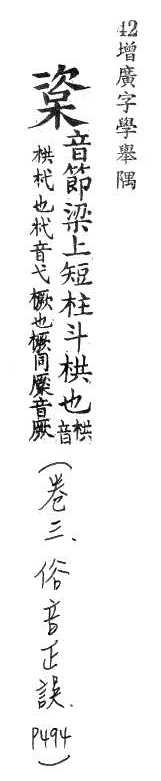 42增廣字學舉隅
楶音節梁上短柱斗栱也栱音
栱杙也杙音弋橛也橛同橜音厥(卷三、俗音正誤.P494)